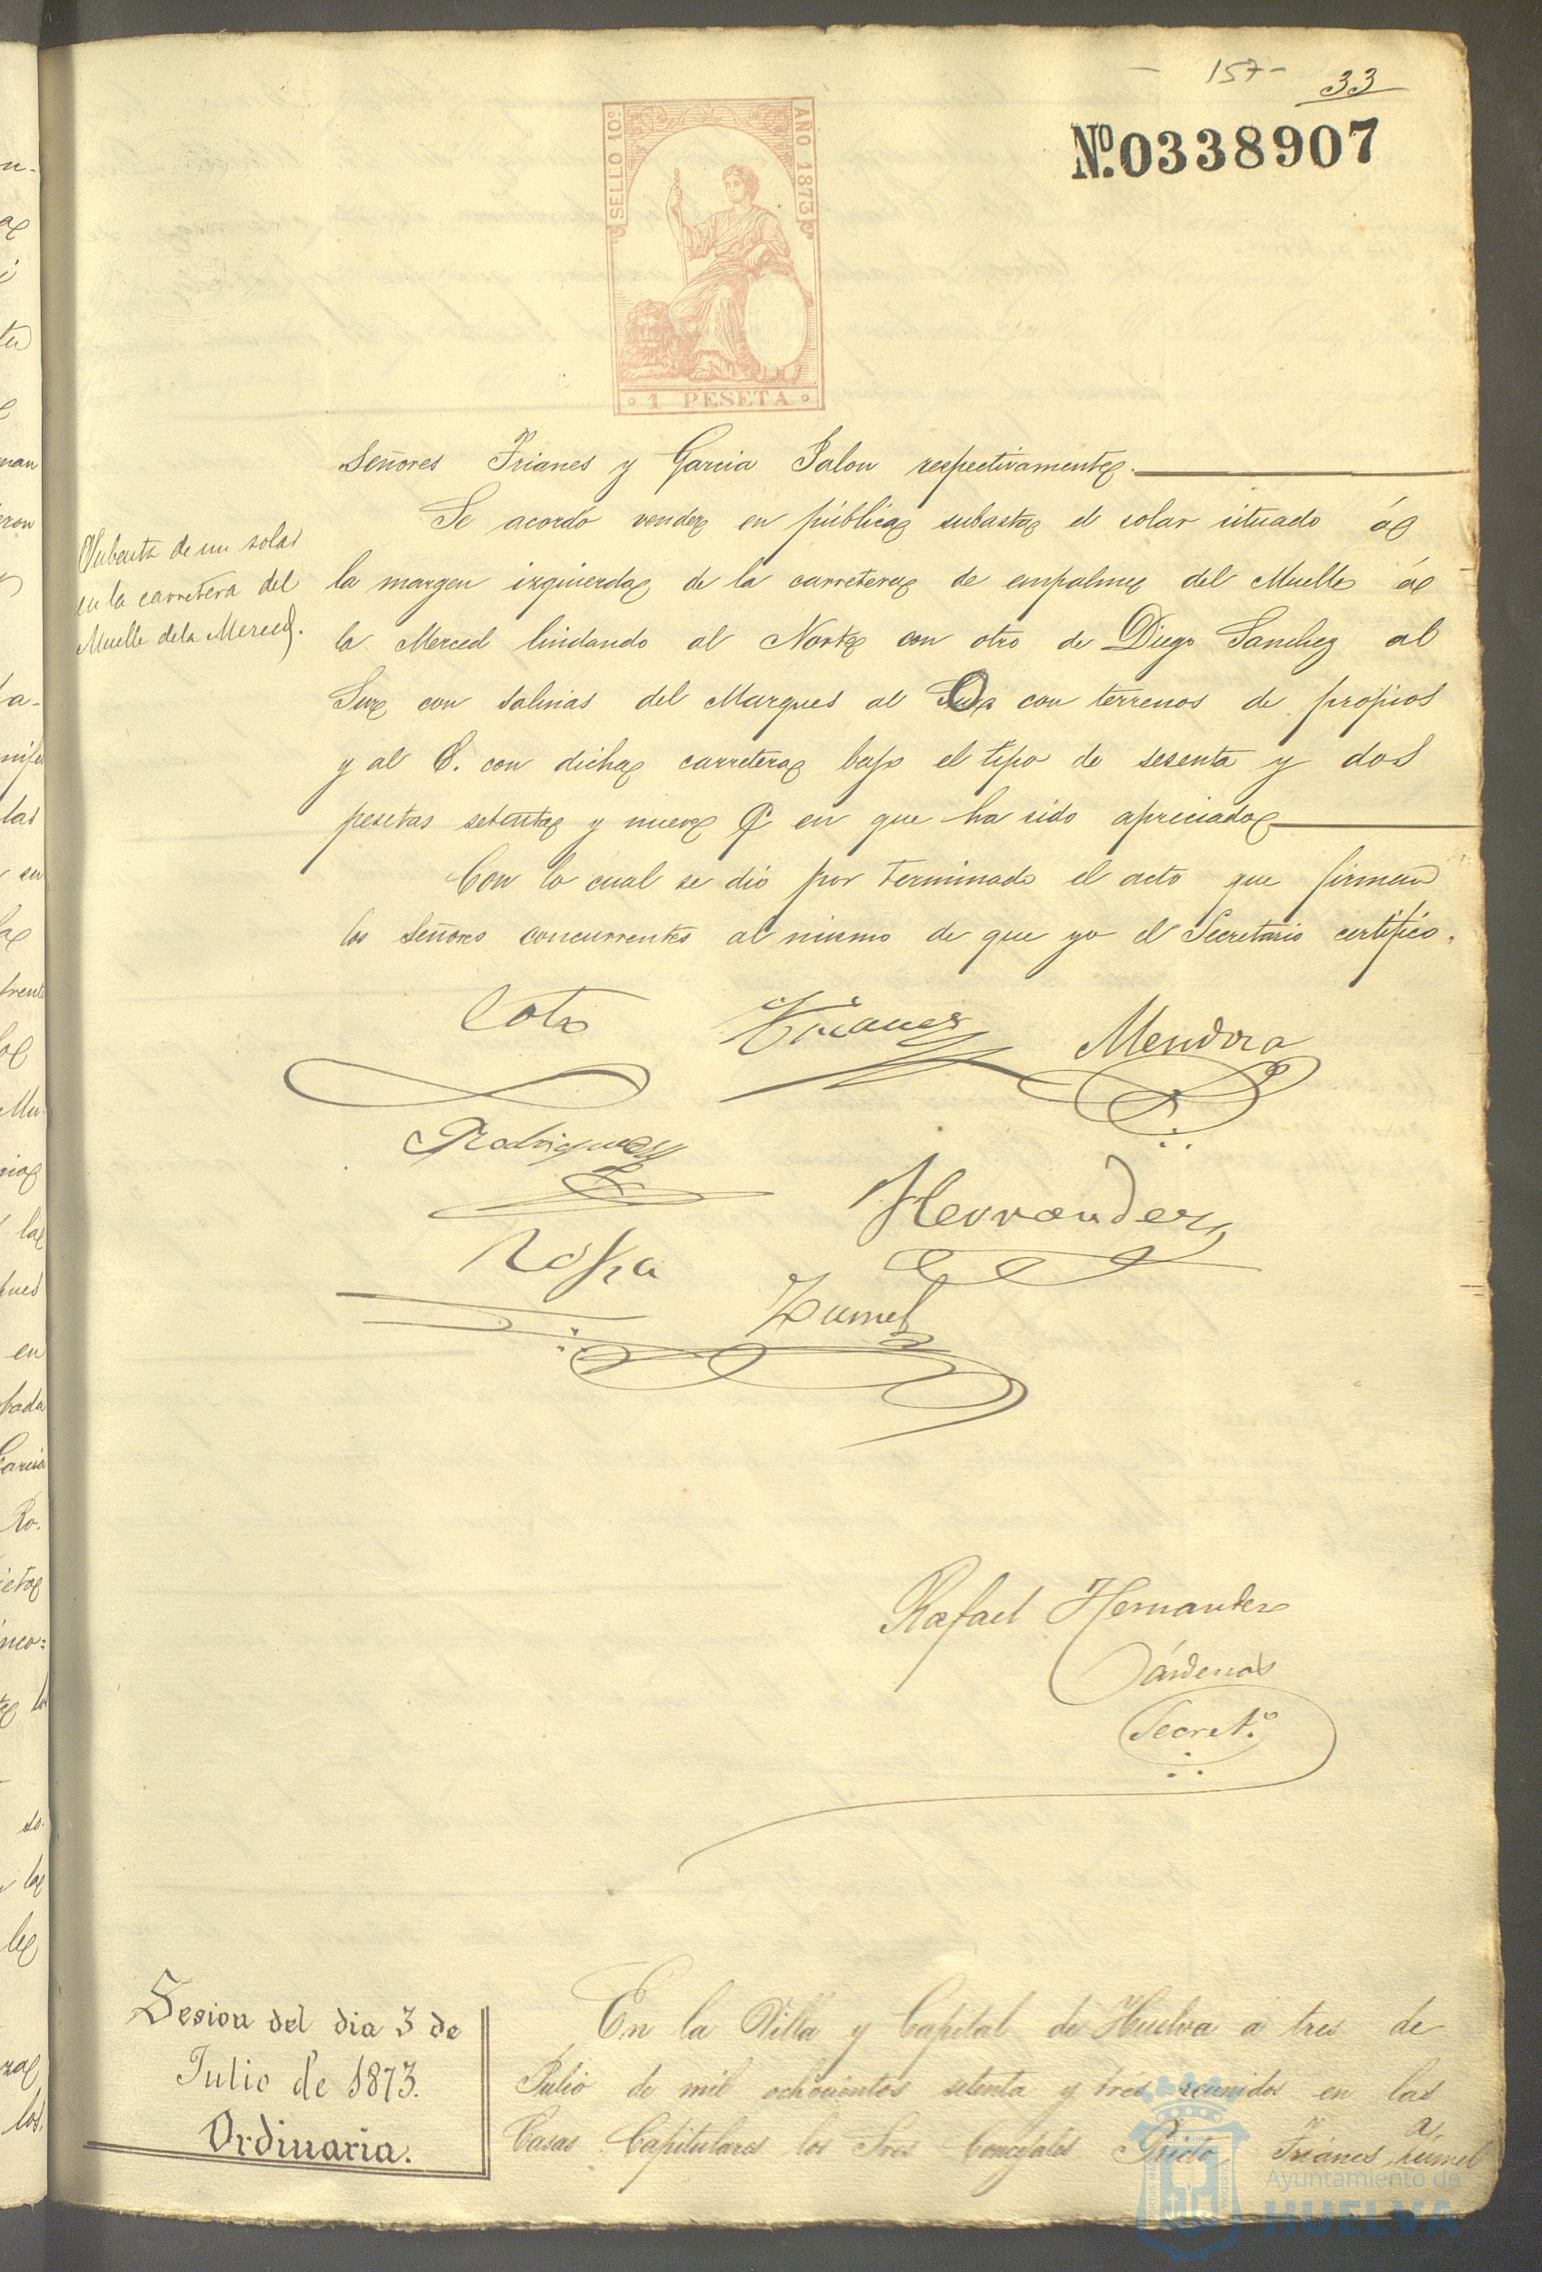 - 157 - 33
Nº. 0338907
SELLO 10º
AÑO 1873
1 PESETA
Señores Trianes y Garcia Jalon respectivamente.
Se acordó vender en pública subasta el solar situado á
la margen izquierda de la carretera de empalme del Muelle á
la Merced lindando al Norte con otro de Diego Sanchez al
Sur con salinas del Marques al O con terrenos de propios
y al E. con dicha carretera bajo el tipo de sesenta y dos
pesetas setenta y nueve en que ha sido apreciado
Con lo cual se dió por terminado el acto que firman
los Señores concurrentes al mismo de que yo el Secretario certifico.
Subasta de un solar
en la carretera del
Muelle de la Merced.
Coto Trianes Mendoza
Rodriguez
Hernandez
Zumel
Rafael Hernandez
Cárdenas
Secretº
Sesion del dia 3 de
Julio de 1873.
Ordinaria.
En la Villa y Capital de Huelva á tres de
Julio de mil ochocientos setenta y trés reunidos en las
Casas Capitulares los Sres Concejales Prieto, Trianes, Zumel
Ayuntamiento de
HUELVA